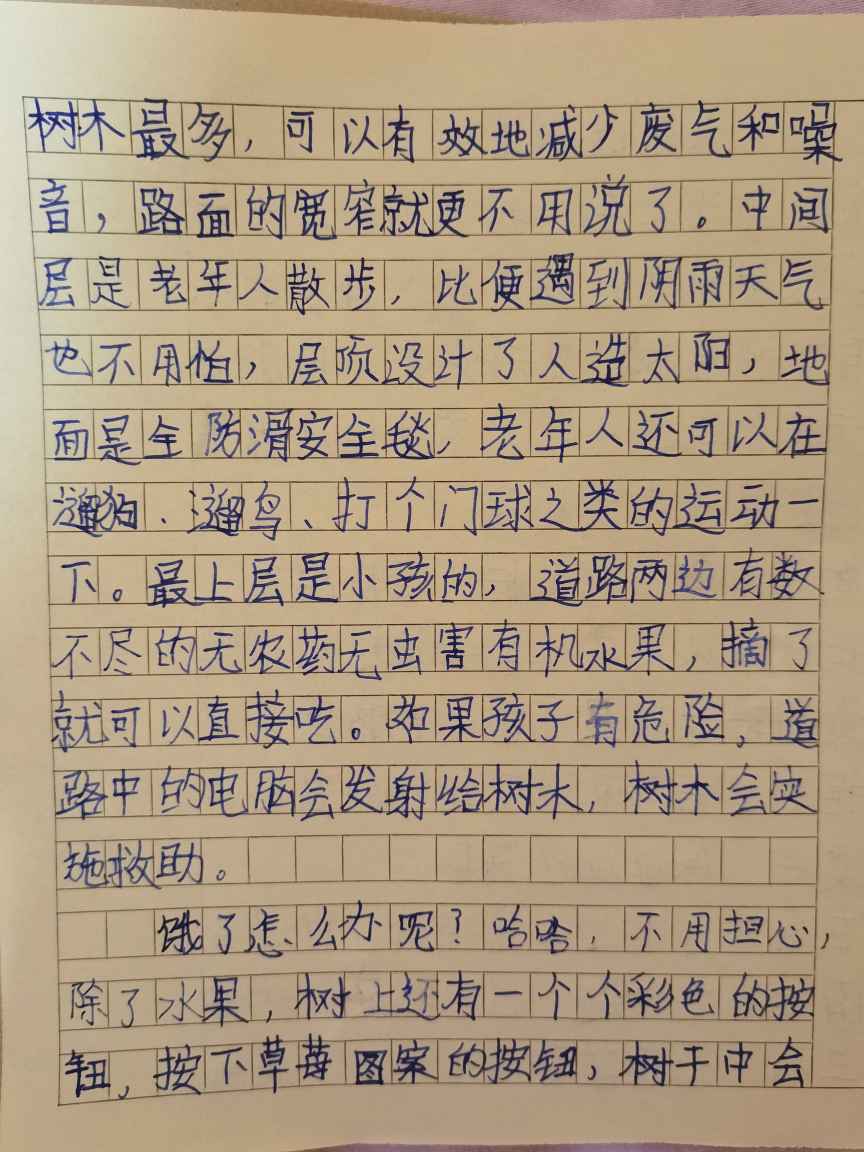 树木最多,可以有效地减少废气和噪
音,路面的宽窄就更不用说了。中间
层是老年人散步,比便遇到阴雨天气
也不用怕,层顶设计了人造太阳,地
面是全防滑安全毯,老年人还可以在
遛狗、遛鸟、打个门球之类的运动一
下。最上层是小孩的,道路两边有数
不尽的无农药无虫害有机水果,摘了
就可以直接吃。如果孩子有危险,道
路中的电脑会发射给树木,树木会实
施救助。
饿了怎么办呢?哈哈,不用担心,
除了水果,树上还有一个个彩色的按
钮,按下草莓图案的按钮,树干中会